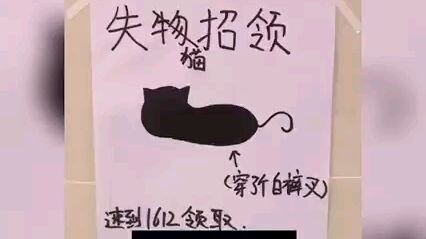 失物招领
猫
(穿了个白裤叉)
速到1612领取.